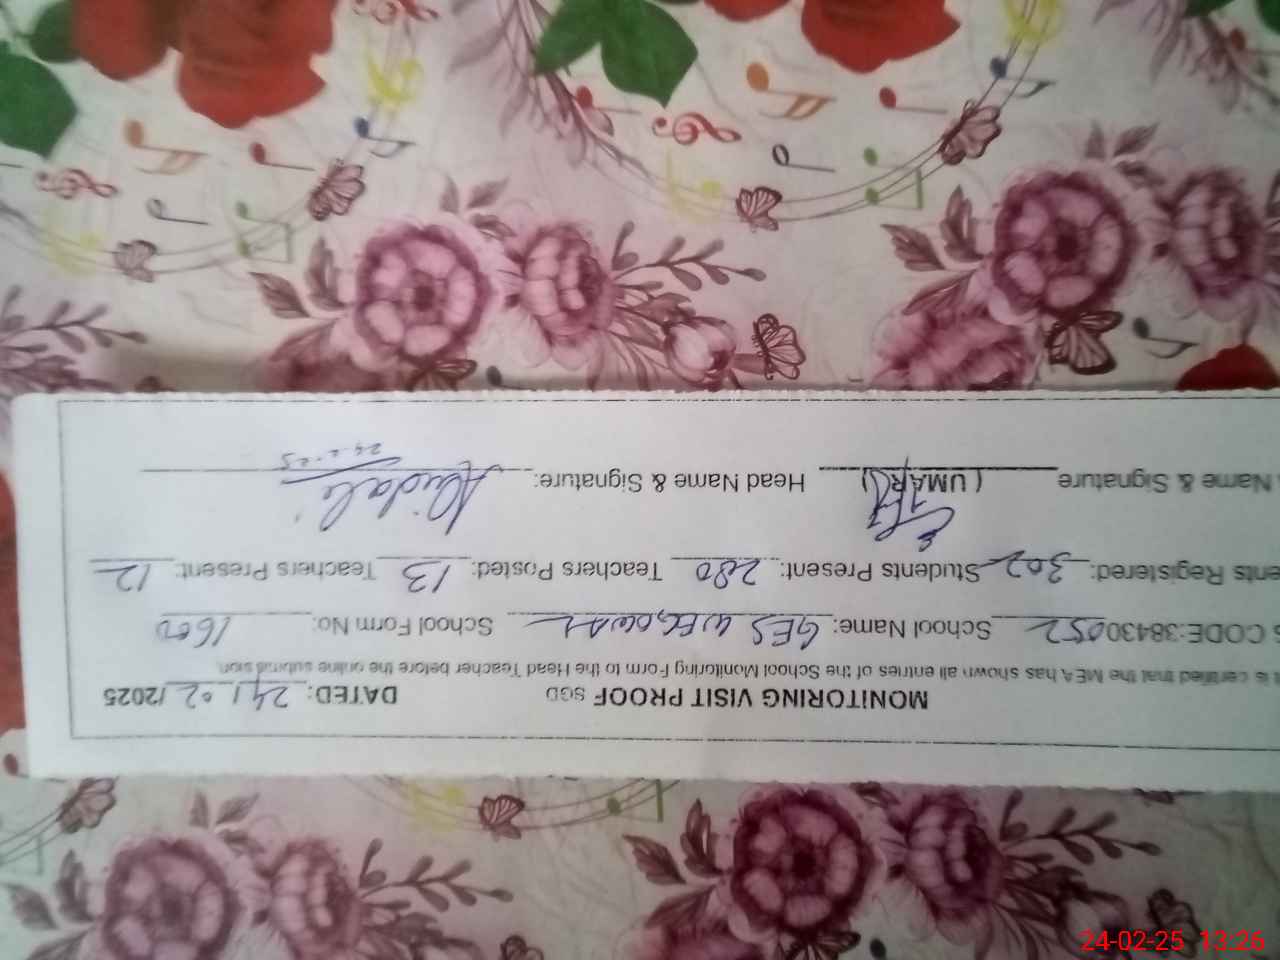 MONITORING VISIT PROOF SGD DATED: 24/02/2025
t is certified that the MEA has shown all entries of the School Monitoring Form to the Head Teacher before the online submission.
S CODE:38430052 School Name: GES School Form No: 1600
ents Registered: 302 Students Present: 280 Teachers Posted: 13 Teachers Present: 12
Name & Signature (UMAR) Head Name & Signature:
24-2-25
24-02-25 13:26